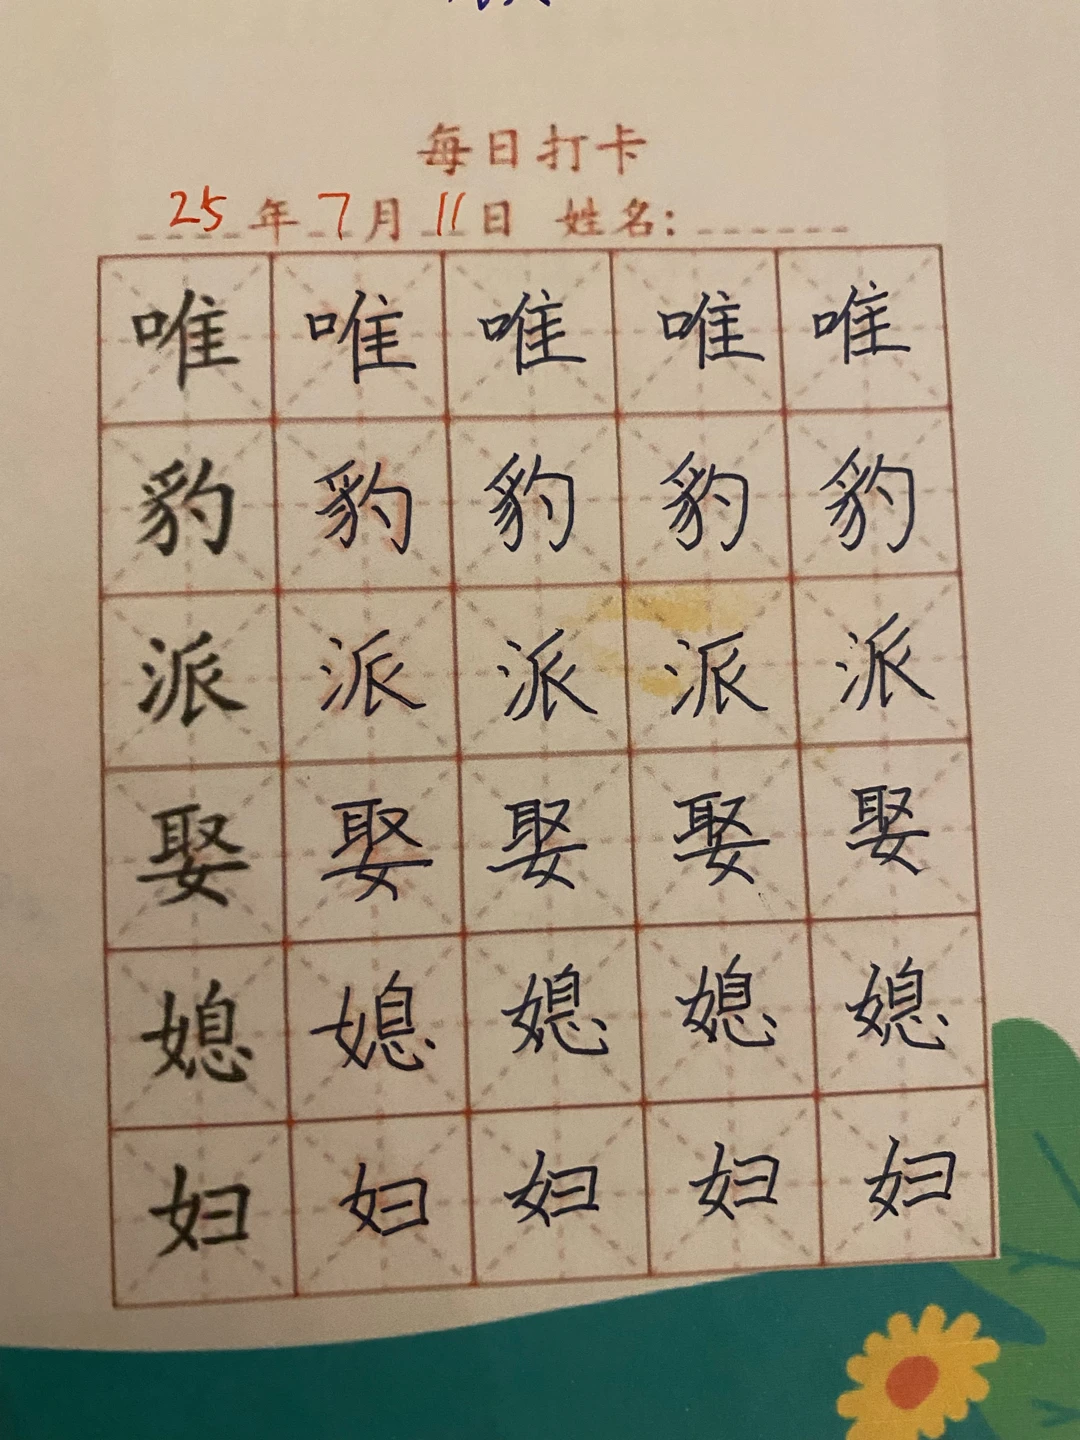 每日打卡
25年7月11日 姓名:
唯唯唯唯唯
豹豹豹豹豹
派派派派派
娶娶娶娶娶
媳媳媳媳媳
妇妇妇妇妇